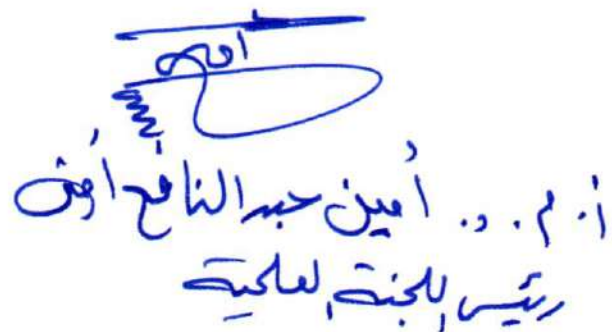 أ. م. د. أمين عبد النافع أمين
رئيس اللجنة العلمية